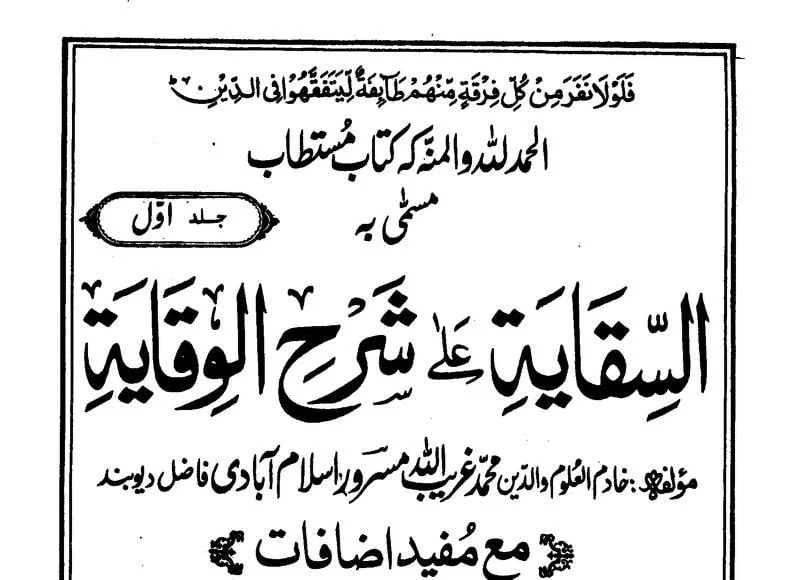 فَلَوْلَا نَفَرَ مِنْ كُلِّ فِرْقَةٍ مِّنْهُمْ طَآئِفَةٌ لِّيَتَفَقَّهُوْا فِی الدِّيْنِ
الحمد للہ والمنّہ کہ کتاب مُستطاب
مسمّٰی بہ
جلد اوّل
السِّقَايَة عَلٰى شَرْحِ الْوِقَايَةِ
مؤلفہ: خادم العُلوم والدّین محمّد غریب اللہ مسرور اسلام آبادی فاضل دیوبند
مع مُفید اضافات